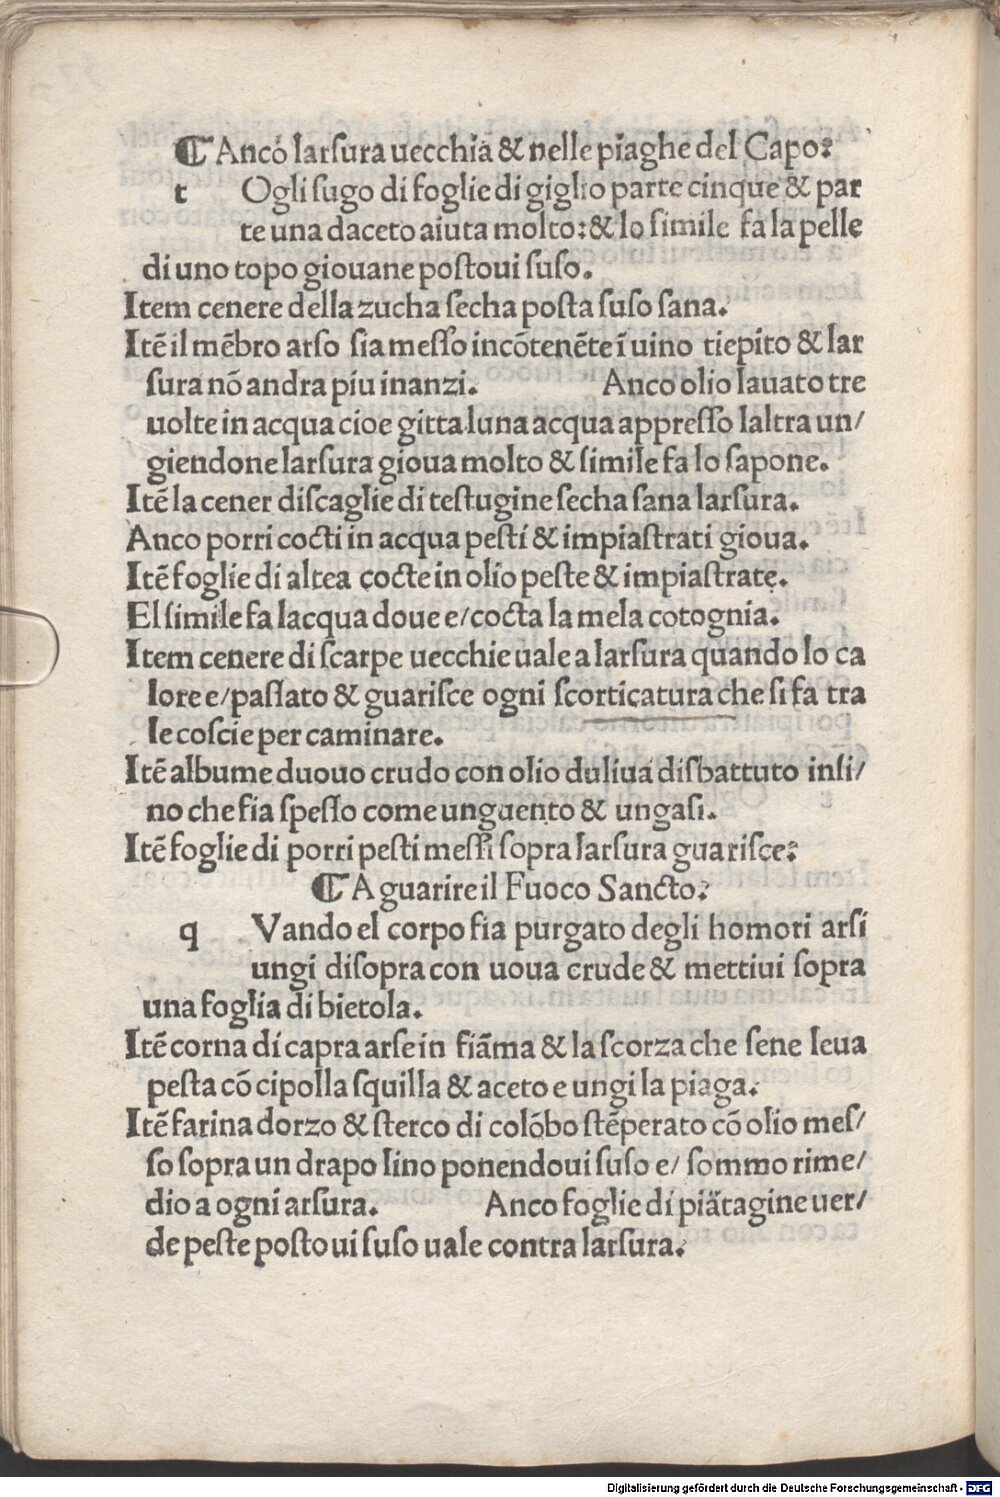 ¶ Anco larsura uecchia & nelle piaghe del Capo?
t Ogli sugo di foglie di giglio parte cinque & par
te una daceto aiuta molto:& lo simile fa la pelle
di uno topo giouane postoui suso.
Item cenere della zucha secha posta suso sana.
Itē il mēbro arso sia messo incōtenēte ī uino tiepito & lar
sura nō andra piu inanzi. Anco olio lauato tre
uolte in acqua cioe gitta luna acqua appresso laltra un/
giendone larsura gioua molto & simile fa lo sapone.
Itē la cener discaglie di testugine secha sana larsura.
Anco porri cocti in acqua pesti & impiastrati gioua.
Itē foglie di altea cocte in olio peste & impiastrate.
El simile fa lacqua doue e/cocta la mela cotognia.
Item cenere di scarpe uecchie uale a larsura quando lo ca
lore e/passato & guarisce ogni scorticatura che si fa tra
le coscie per caminare.
Itē albume duouo crudo con olio duliua disbattuto insi/
no che fia spesso come unguento & ungasi.
Itē foglie di porri pesti messi sopra larsura guarisce?
¶ A guarire il Fuoco Sancto?
q Vando el corpo fia purgato degli homori arsi
ungi disopra con uoua crude & mettiui sopra
una foglia di bietola.
Itē corna di capra arse in fiāma & la scorza che sene leua
pesta cō cipolla squilla & aceto e ungi la piaga.
Itē farina dorzo & sterco di colōbo stēperato cō olio mes/
so sopra un drapo lino ponendoui suso e/ sommo rime/
dio a ogni arsura. Anco foglie di piātagine uer/
de peste posto ui suso uale contra larsura.
Digitalisierung gefördert durch die Deutsche Forschungsgemeinschaft - DFG